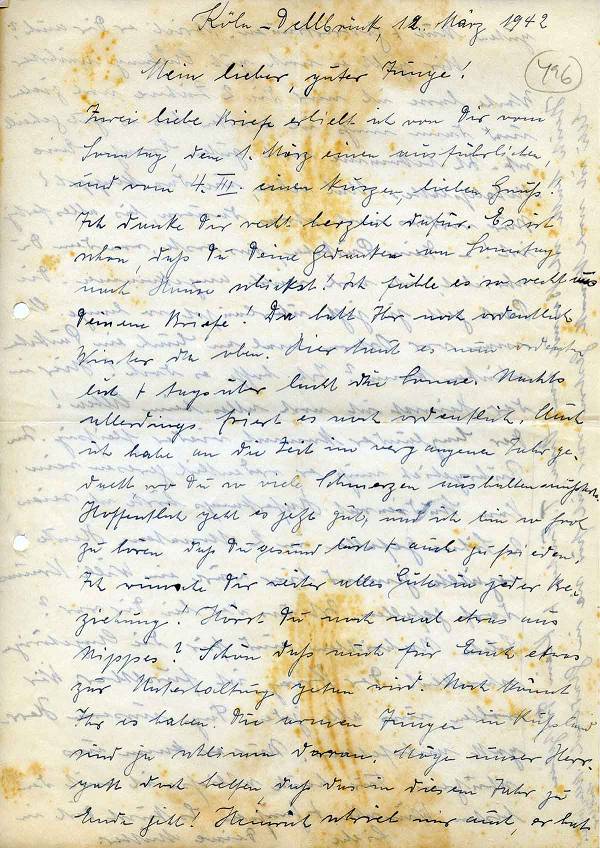 Köln-Dellbrück, 12. März 1942
496
Mein lieber, guter Junge!
Zwei liebe Briefe erhielt ich von Dir, vom
Sonntag, dem 1. März einen ausführlichen,
und vom 4. III. einen kurzen, lieben Gruß.
Ich danke Dir recht herzlich dafür. Es ist
schön, daß Du Deine Gedanken am Sonntag
nach Hause schickst! Ich fühle es so recht aus
Deinem Briefe! Da habt Ihr noch ordentlich
Winter da oben. Hier taut es nun
+ tagsüber lacht die Sonne. Nachts
allerdings friert es noch ordentlich. Auch
ich habe an die Zeit im vergangenen Jahr ge-
dacht wo Du so viele Schmerzen aushalten mußtest.
Hoffentlich geht es jetzt gut, und ich bin so froh
zu hören daß Du gesund bist + auch zufrieden.
Ich wünsche Dir weiter alles Gute in jeder Be-
ziehung! Hörst Du noch mal etwas aus
Nippes? Schön daß auch für Euch etwas
zur Unterhaltung geboten wird. Noch könnt
Ihr es haben. Die armen Jungen in Rußland
sind ja schlimm daran. Möge unser Herr-
gott doch helfen, daß das in diesem Jahr zu
Ende geht! Heinrich schrieb mir auch, er hat